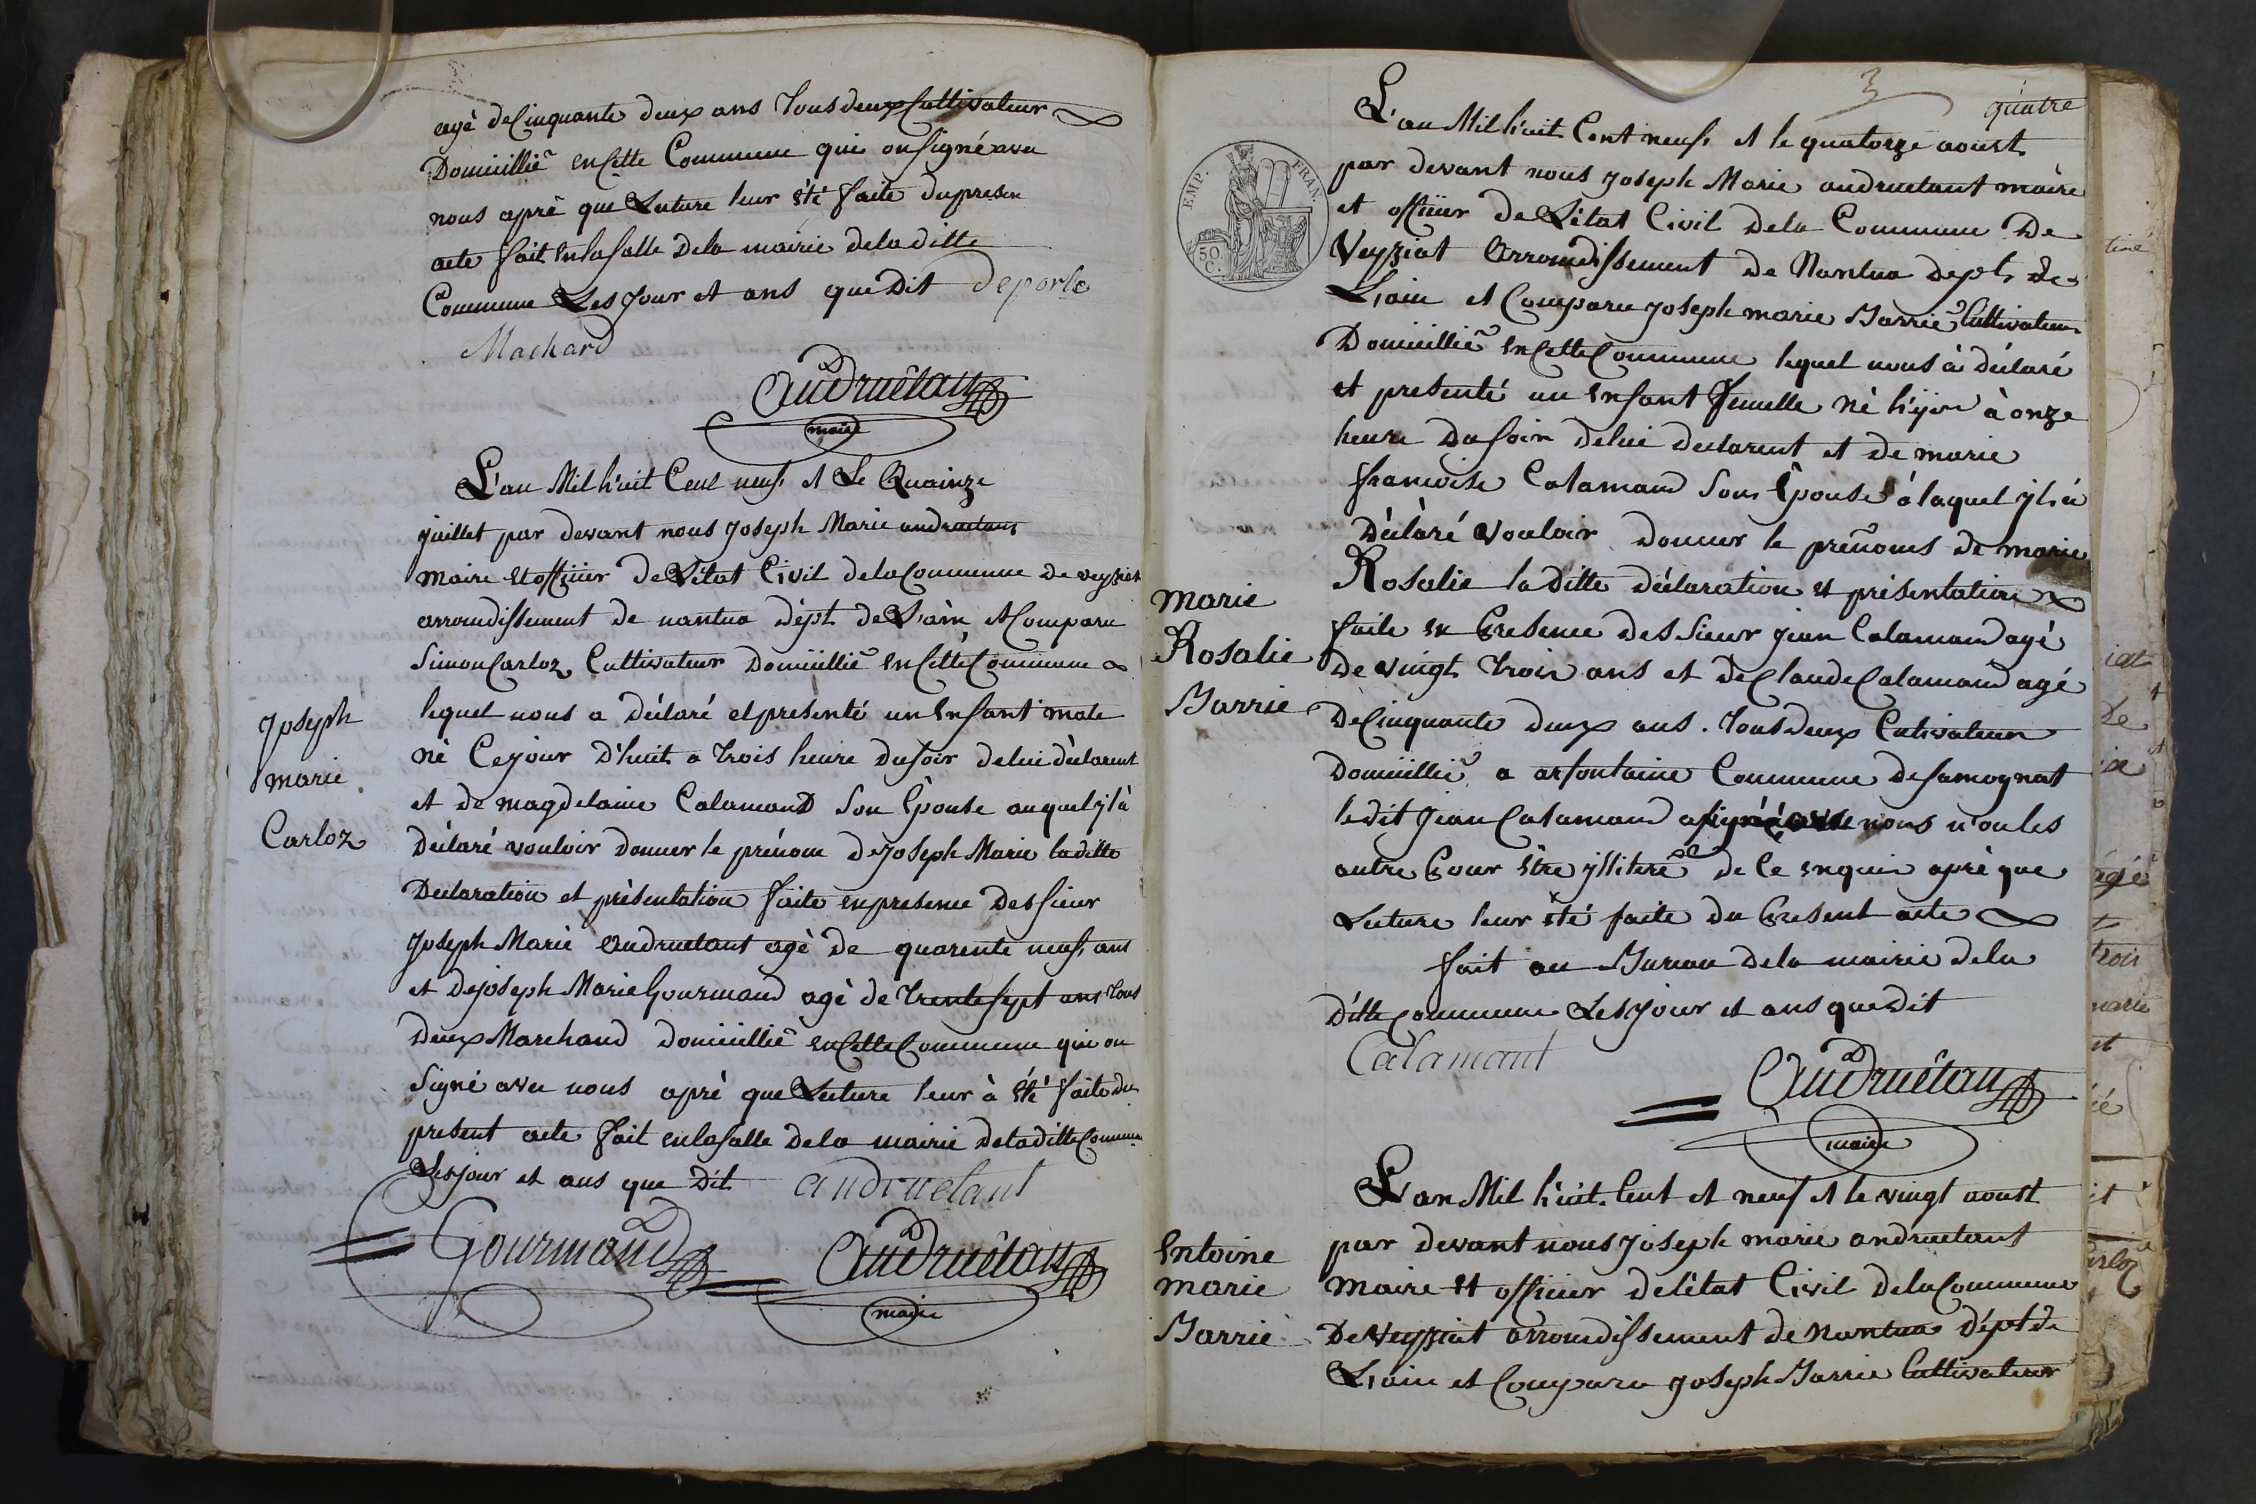 agé de Cinquante deux ans tous deux Cultivateur
Domicillié en Cette Commune qui on signé avec
nous aprè que Lecture leur été faite du presen
acte fait en la salle dela mairie de la ditte
Commune Les Jour et ans que Dit deporte
Machard
Andruétan
maire
L'an Mil huit Cent neuf et Le Quainze
juillet par devant nous Joseph Marie andruetant
maire et officier de L'état Civil de la Commune de veyziat
arrondissement de nantua dépt. de L'ain et Comparu
Simon Carloz Cultivateur Domicillié en Cette Commune
Joseph
marie
Carloz
lequel nous a déclaré et presenté un Enfant male
né Ce jour D'huit a trois heure du soir de lui déclarent
et de magdelaine Calamand Son Épouse au quel jl à
Déclaré vouloir donner le prénom de Joseph Marie la ditte
Declaration et présentation faite en presence des sieur
Joseph Marie andruetant agé de quarente neuf ans
et de joseph Marie Gourmand agé de trente sept ans tous
deux Marchand domicillié en Cette Commune qui on
Signé avec nous aprè que Lecture leur à été faite du
present acte fait en la salle de la mairie de la ditte Commune
Les jour et ans que Dit andruetant
Gourmand Andruétan
maire
3 quatre
EMP. FRAN.
50 C.
L'an Mil huit Cent neuf et le quatorze aoust
par devant nous joseph Marie andruetant maire
et officier de L'état Civil de la Commune De
Veyziat Arrondissement de Nantua dept. de
L'ain et Comparu joseph marie Barrié Cultivateur
Domicillié en Cette Commune lequel nous à déclaré
et presenté un enfant femelle né hijer à onze
heure du soir de lui declarent et de marie
francoise Calamand Son Épouse à laquel jl à
Déclaré vouloir donner le prénoms de marie
Rosalie la ditte déclaration et présentation
marie
Rosalie
Barrié
faite en Presence des Sieur jean Calamand agé
de vingt trois ans et de Claude Calamand agé
de Cinquante deux ans. tous deux Cutivateur
Domicillié a arfontaine Commune de samognat
le dit jean Calamand a signé avec nous n'on les
autre Pour être jlliteré de Ce enquis aprè que
Lecture leur été faite du Present acte
fait au Bureau de la mairie de la
ditte Commune Les jour et ans que Dit
Calamant
Andruétan
maire
L'an Mil huit Cent et neuf et le vingt aoust
Entoine
marie
Barrié
par devant nous joseph marie andruetant
maire et officier de l'état Civil de la Commune
De Veyziat arrondissement de Nantua dépt de
L'ain et Comparu joseph Barrié Cultivateur